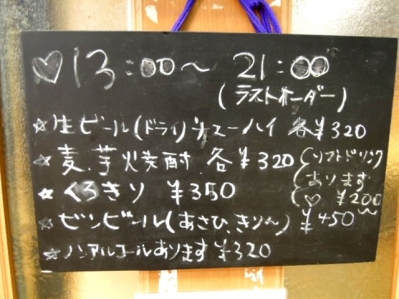 ♡13:00〜 21:00
(ラストオーダー)
☆生ビール(ドライ)チューハイ 各¥320
☆麦、芋焼酎 各¥320
☆くろきり ¥350
☆ビンビール(あさひ、きりん) ¥450〜
☆ノンアルコールあります ¥320
ソフトドリンク
あります
♡ ¥200〜